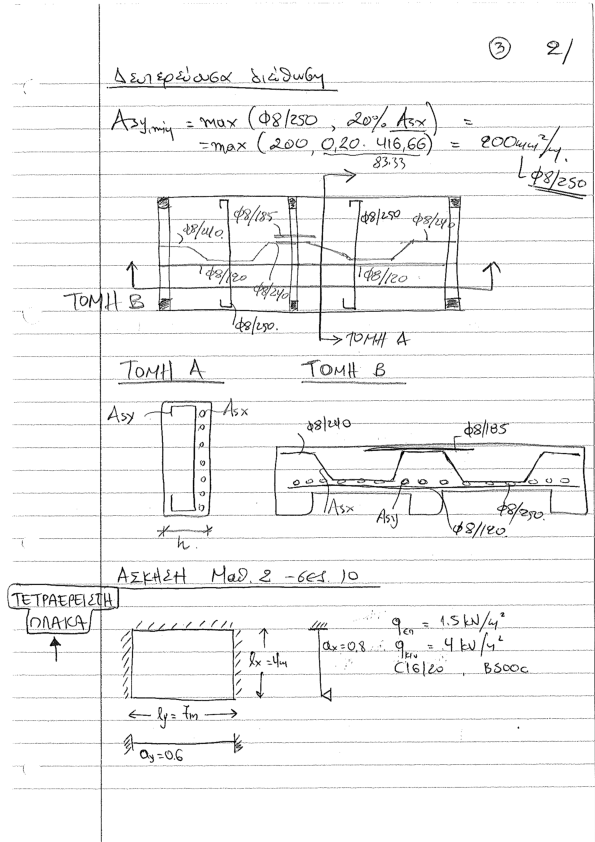 ③ 2/
Δευτερεύουσα διεύθυνση
Asy,min = max (Φ8/250 , 20% Asx) =
= max (200, 0,20 · 416,66) = 200mm²/m.
83.33
Φ8/250
Φ8/185
Φ8/250
Φ8/240
Φ8/240
Φ8/120
Φ8/240
Φ8/120
ΤΟΜΗ Β
Φ8/250.
ΤΟΜΗ Α
ΤΟΜΗ Α
ΤΟΜΗ Β
Asy
Asx
Φ8/240
Φ8/185
Asx
Asy
Φ8/250.
Φ8/120.
h.
ΑΣΚΗΣΗ Μαθ. 2 - σελ. 10
ΤΕΤΡΑΕΡΕΙΣΤΗ
ΠΛΑΚΑ
lx = 4m
ax=0.8
qεπ = 1.5 kN/m²
qκιν = 4 kN/m²
C16/20 , B500c
ly = 7m
ay=0.6